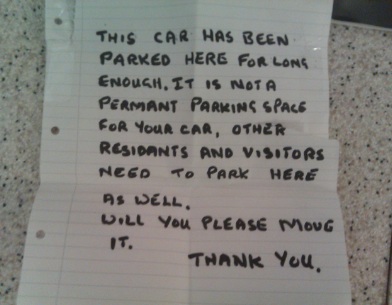 THIS CAR HAS BEEN
PARKED HERE FOR LONG
ENOUGH. IT IS NOT A
PERMANT PARKING SPACE
FOR YOUR CAR, OTHER
RESIDANTS AND VISITORS
NEED TO PARK HERE
AS WELL.
WILL YOU PLEASE MOVE
IT.
THANK YOU.